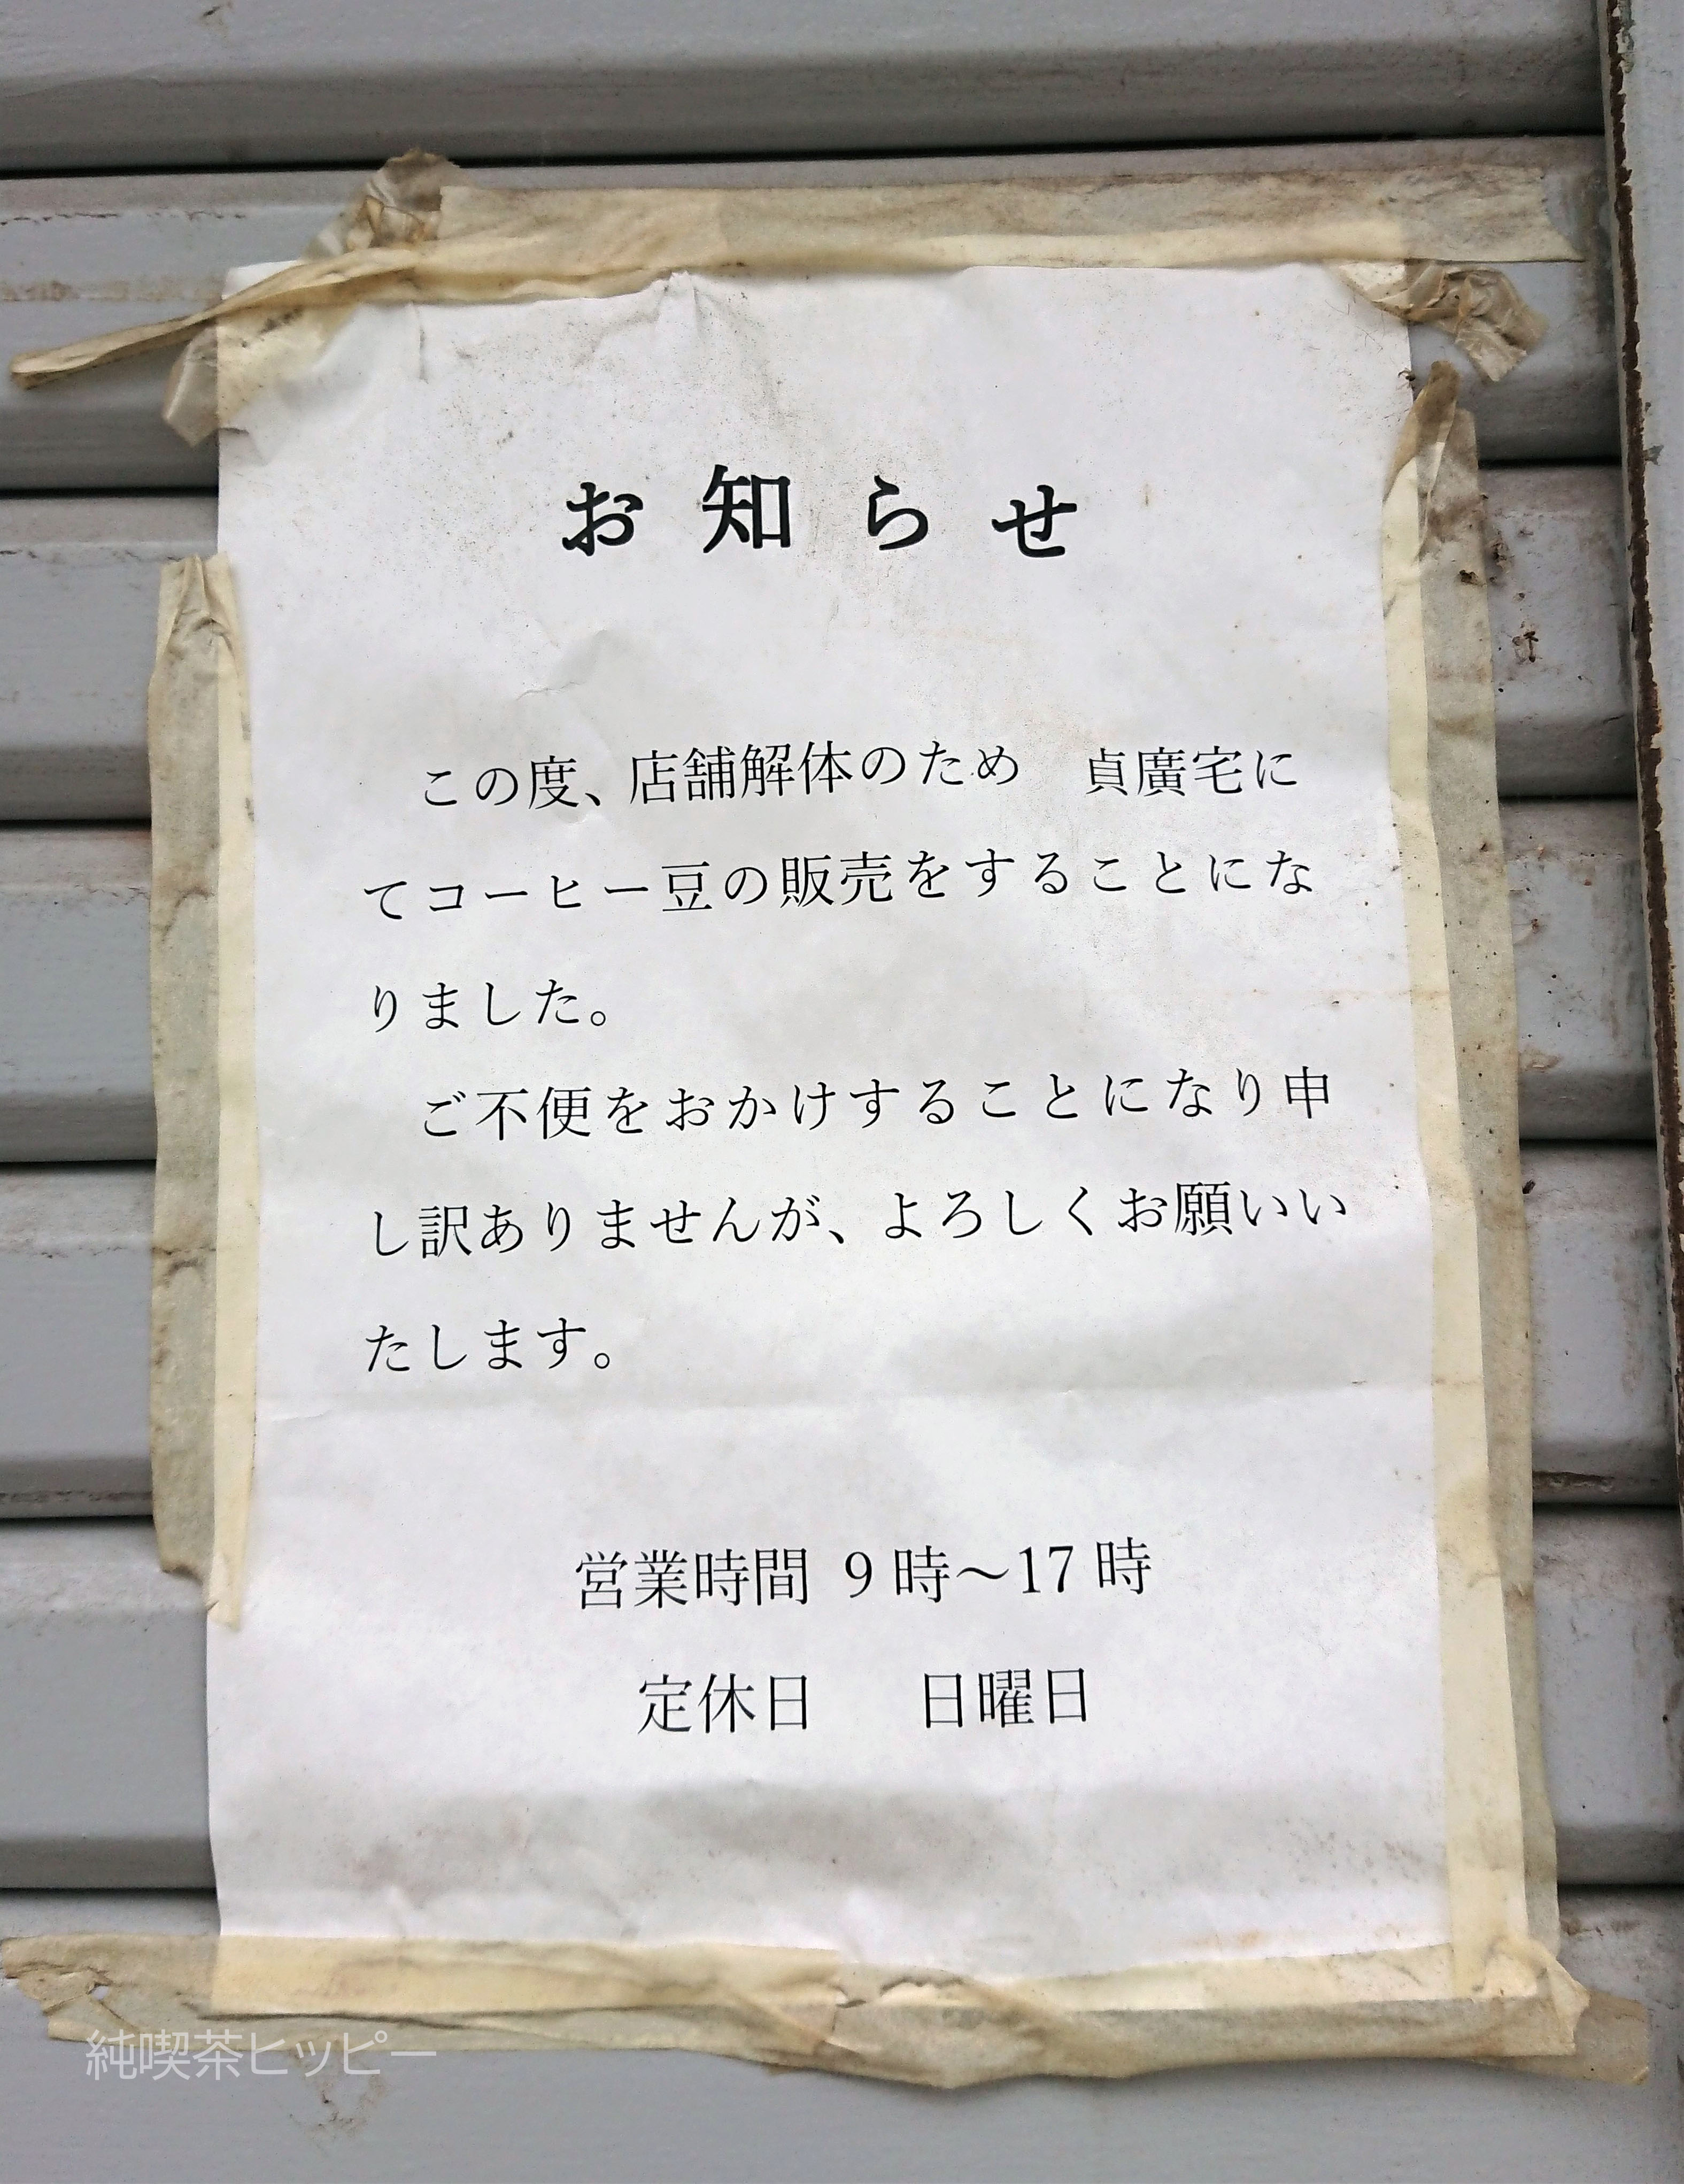 お知らせ
この度、店舗解体のため　貞廣宅に
てコーヒー豆の販売をすることにな
りました。
ご不便をおかけすることになり申
し訳ありませんが、よろしくお願いい
たします。
営業時間 9時～17時
定休日　日曜日
純喫茶ヒッピー